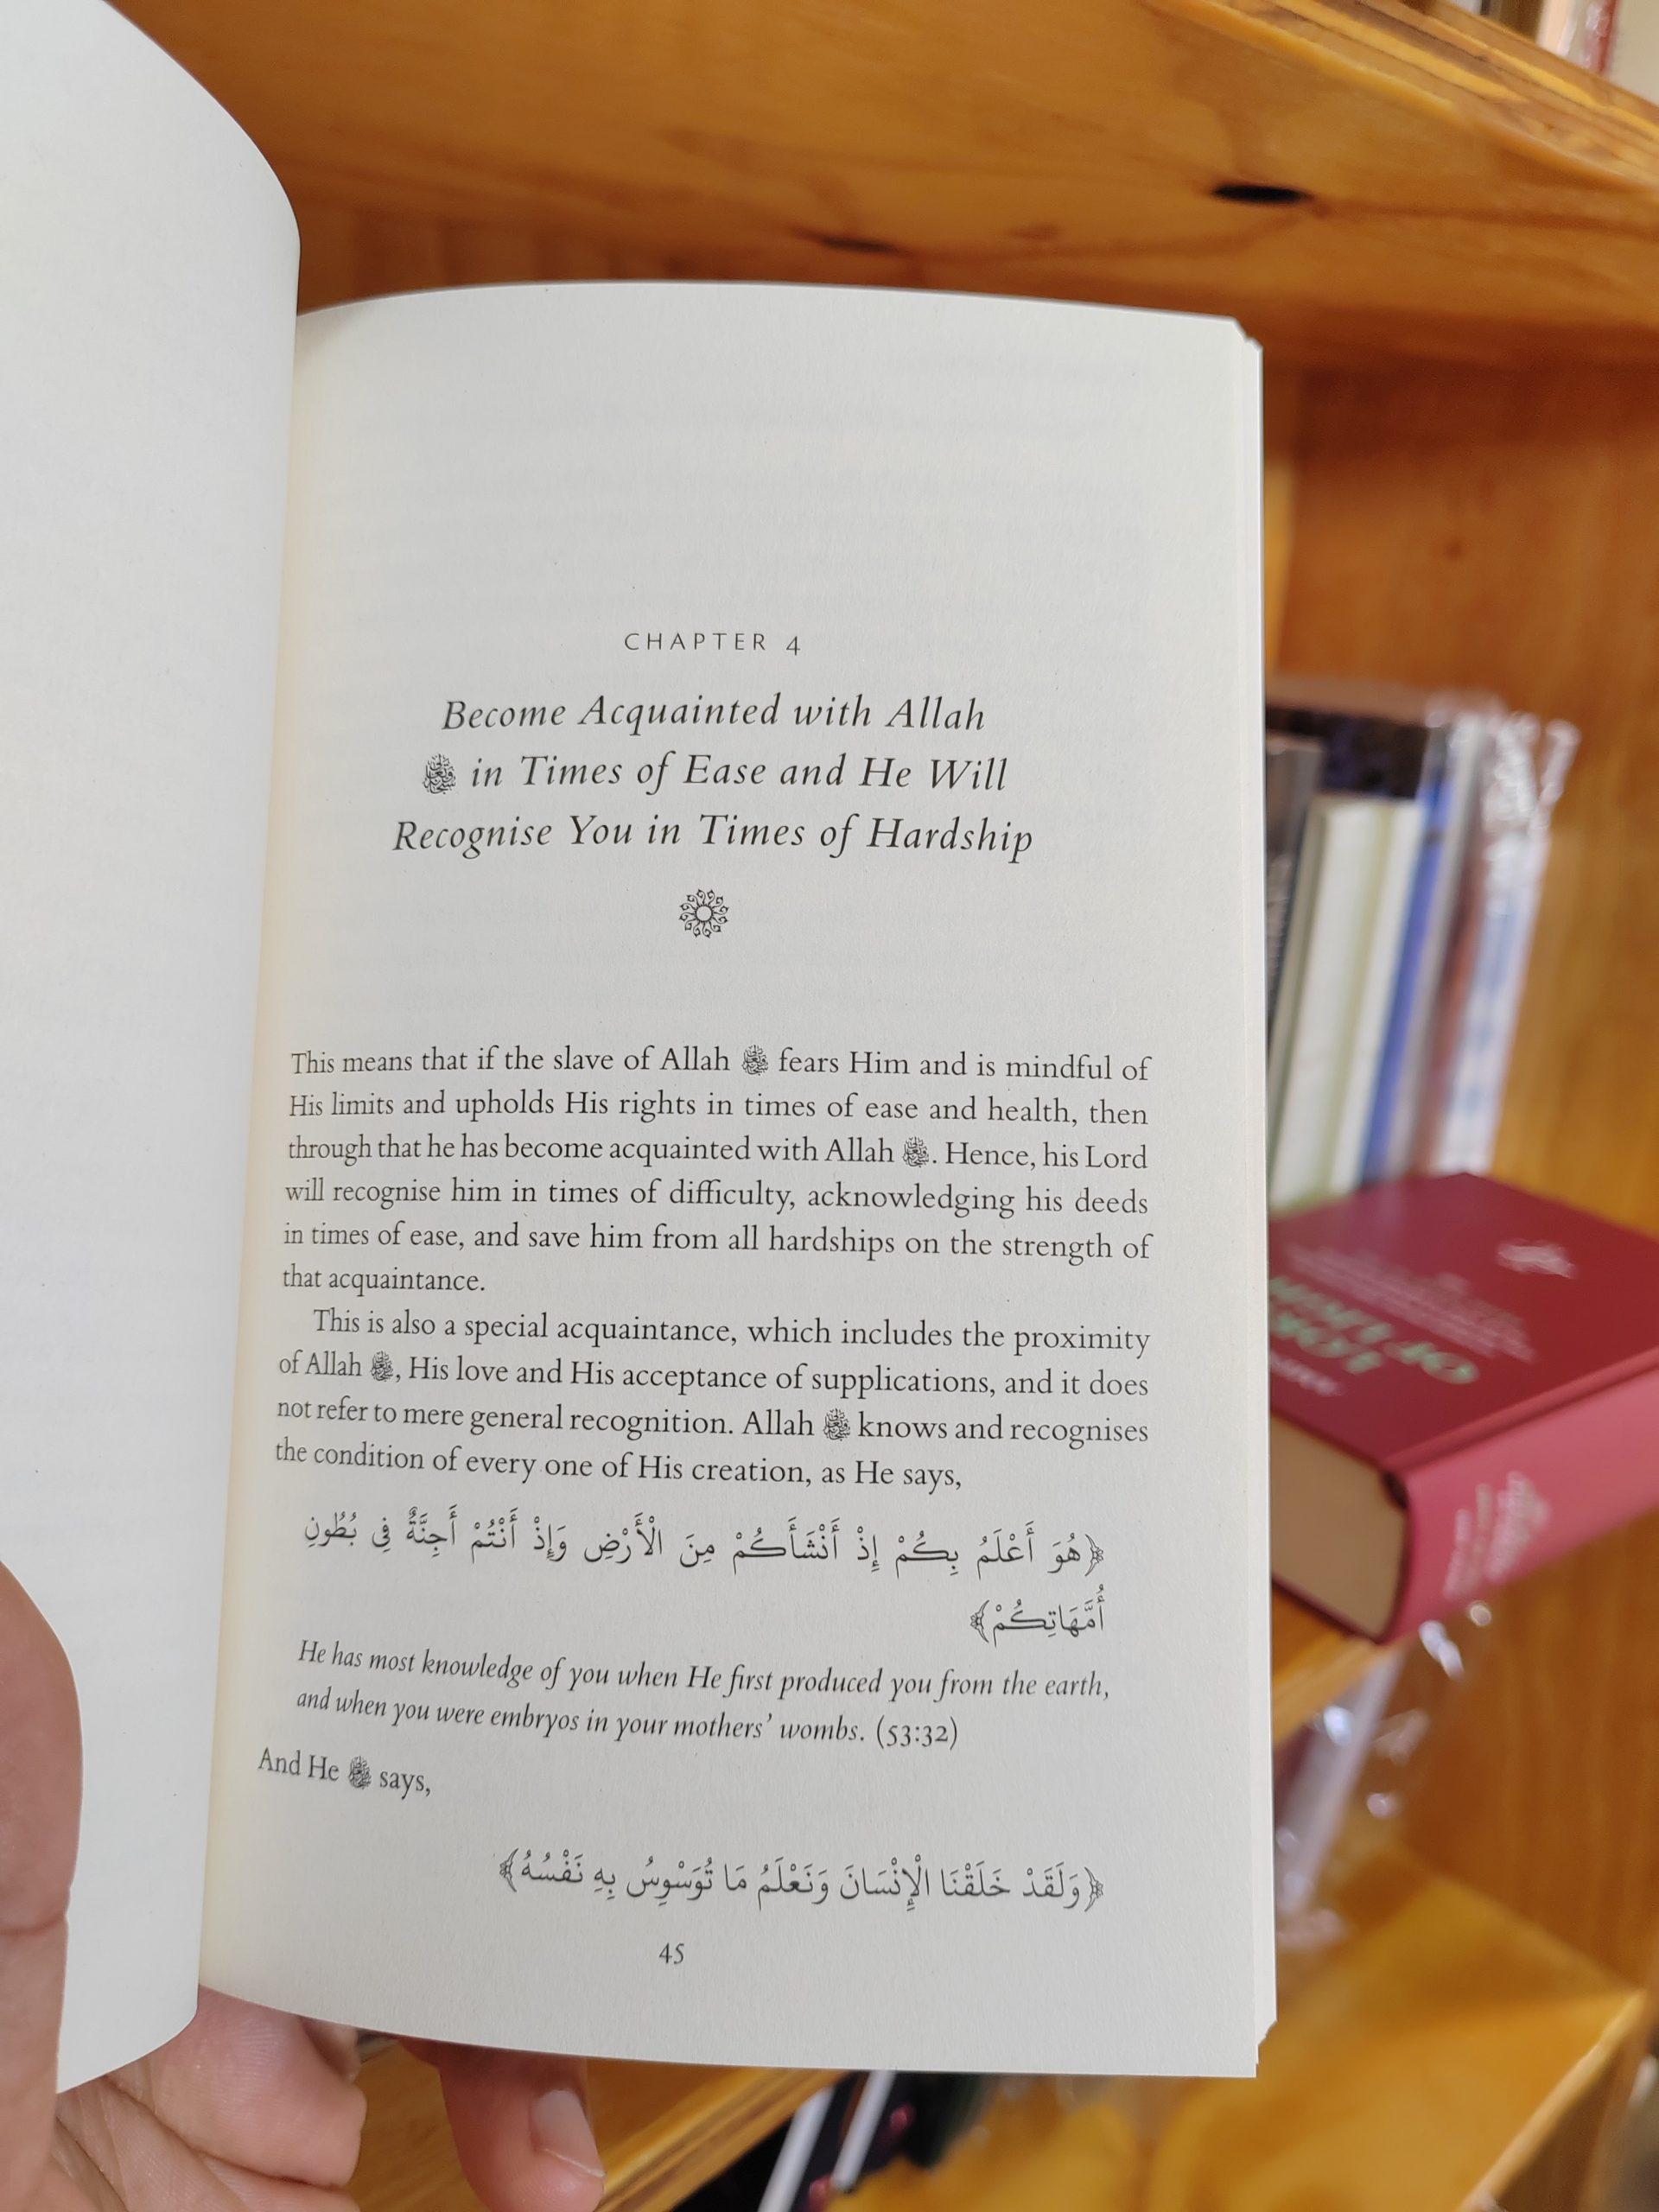 CHAPTER 4
Become Acquainted with Allah
in Times of Ease and He Will
Recognise You in Times of Hardship
This means that if the slave of Allah fears Him and is mindful of
His limits and upholds His rights in times of ease and health, then
through that he has become acquainted with Allah . Hence, his Lord
will recognise him in times of difficulty, acknowledging his deeds
in times of ease, and save him from all hardships on the strength of
that acquaintance.
This is also a special acquaintance, which includes the proximity
of Allah , His love and His acceptance of supplications, and it does
not refer to mere general recognition. Allah knows and recognises
the condition of every one of His creation, as He says,
﴿هُوَ أَعْلَمُ بِكُمْ إِذْ أَنْشَأَكُمْ مِنَ الْأَرْضِ وَإِذْ أَنْتُمْ أَجِنَّةٌ فِي بُطُونِ
أُمَّهَاتِكُمْ﴾
He has most knowledge of you when He first produced you from the earth,
and when you were embryos in your mothers' wombs. (53:32)
And He says,
﴿وَلَقَدْ خَلَقْنَا الْإِنْسَانَ وَنَعْلَمُ مَا تُوَسْوِسُ بِهِ نَفْسُهُ﴾
45